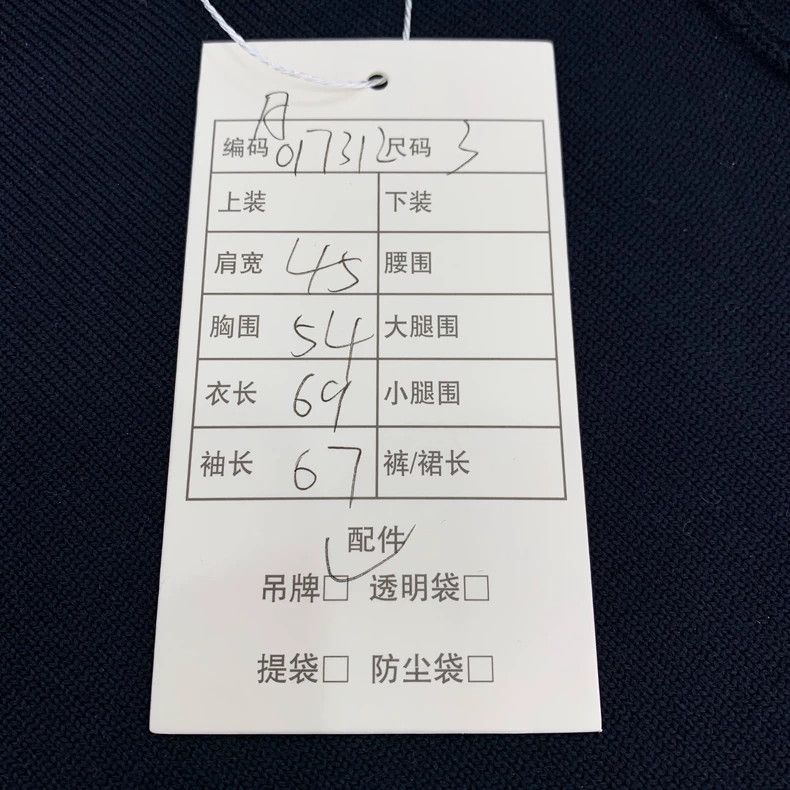 编码 A017312 尺码 3
上装 下装
肩宽 45 腰围
胸围 54 大腿围
衣长 69 小腿围
袖长 67 裤/裙长
配件
吊牌□ 透明袋□
提袋□ 防尘袋□